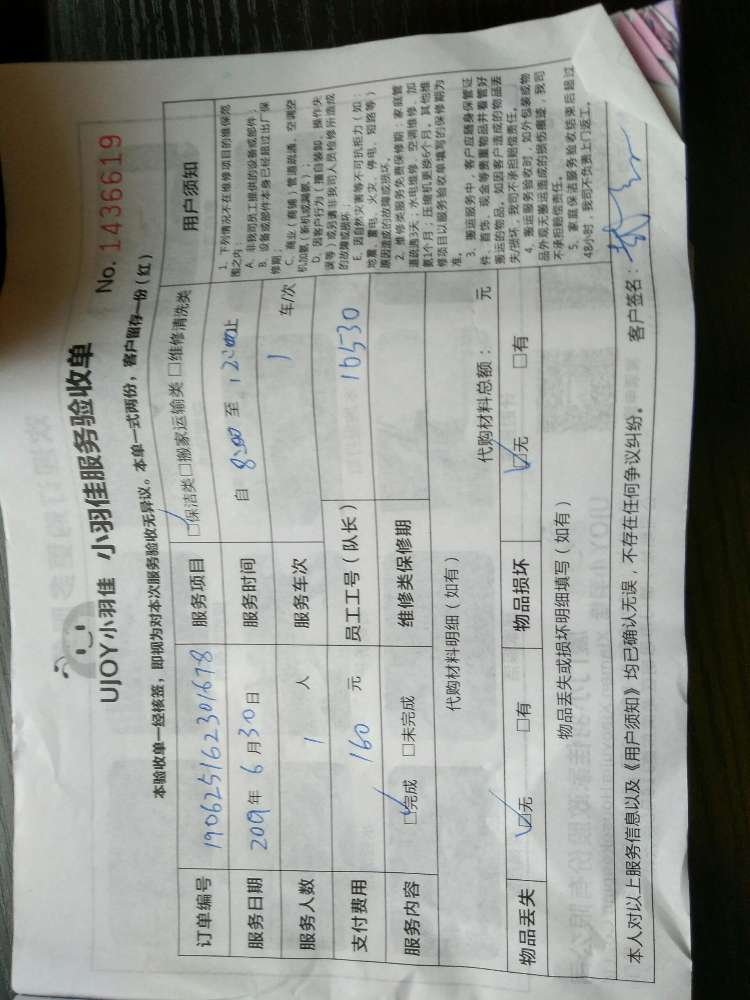 UJOY小羽佳 小羽佳服务验收单 No. 1436619
本验收单一经核签，即视为对本次服务验收无异议。本单一式两份，客户留存一份（红）
订单编号 190625162301678 服务项目 ☑保洁类□搬家运输类 □维修清洗类
服务日期 2019年 6 月 30 日 服务时间 自 8:00 至 12:00止
服务人数 1 人 服务车次 1 车/次
支付费用 160 元 员工工号（队长） 10530
服务内容 ☑完成 □未完成 维修类保修期
代购材料明细（如有） 代购材料总额： 元
物品丢失 ☑无 □有 物品损坏 ☑无 □有
物品丢失或损坏明细填写（如有）
本人对以上服务信息以及《用户须知》均已确认无误，不存在任何争议纠纷。 客户签名：
用户须知
1. 下列情况不在维修项目的维保范
围之内：
A. 非我司员工提供的设备或部件；
B. 设备或部件本身已经超过出厂保
修期；
C. 商业（商铺）管道疏通、空调空
机加氨（新机或漏氨）；
D. 因客户行为（擅自装卸、操作失
误等）或另请非我司人员检修所造成
的故障或损坏；
E. 因自然灾害等不可抗拒力（如：
地震、雷电、火灾、停电、短路等）
原因造成的故障或损坏。
2. 维修类服务免费保修期：家庭管
道疏通3天；水电维修、空调维修、加
氨1个月；压缩机更换6个月，其他维
修项目以服务验收单填写的保修期为
准。
3. 搬运服务中，客户应随身保管证
件、首饰、现金等贵重物品并看管好
搬运的物品，如因客户造成的物品丢
失/损坏，我司不承担赔偿责任。
4. 搬运服务验收时，如外包装或物
品外观无搬运造成的损伤痕迹，我司
不承担赔偿责任。
5. 家庭保洁服务验收结束后超过
48小时，我司不负责上门返工。